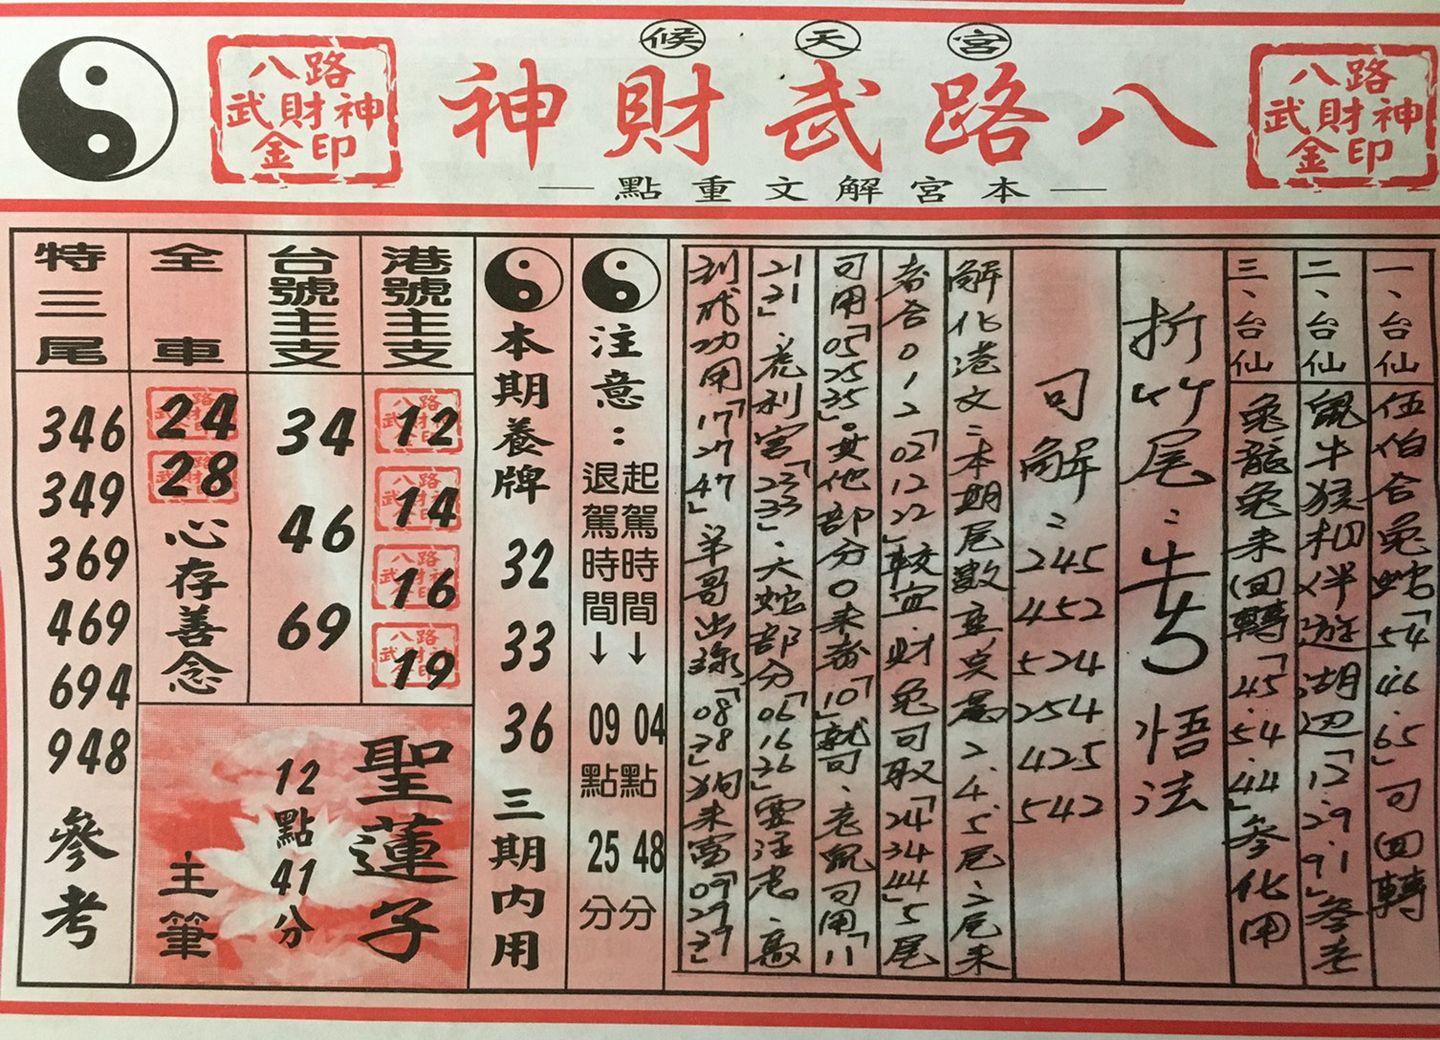 候天宮
八路武財神
八路
武財神
金印
八路
武財神
金印
—本宮解文重點—
一、台仙
伍伯合兔蛇「54.46.65」可回轉
二、台仙
鼠牛猴相伴遊湖边「12.29.91」參考
三、台仙
兔龍兔来回轉「45.54.44」參化用
折竹尾:
悟法
可解:245
452
524
254
425
542
解化港文:本期尾數
2.4.5.尾
者合012「02 12 22」較宜.财兔可取「24 34 44」5尾
可用「05 25 35」。其他部分0来春「10」就可.老鼠可用「11
21 31」.虎利宮「23 33」.大蛇部分「06 16 36」
到成功用「17 27 47」羊哥出「08 28」狗来富「09 29 39」
注意:
起駕時間↓04點48分
退駕時間↓09點25分
本期養牌 32 33 36 三期内用
港號主支
12
14
16
19
台號主支
34
46
69
全車
24
28
心存善念
特三尾
346
349
369
469
694
948
參考
聖蓮子
12點41分
主筆